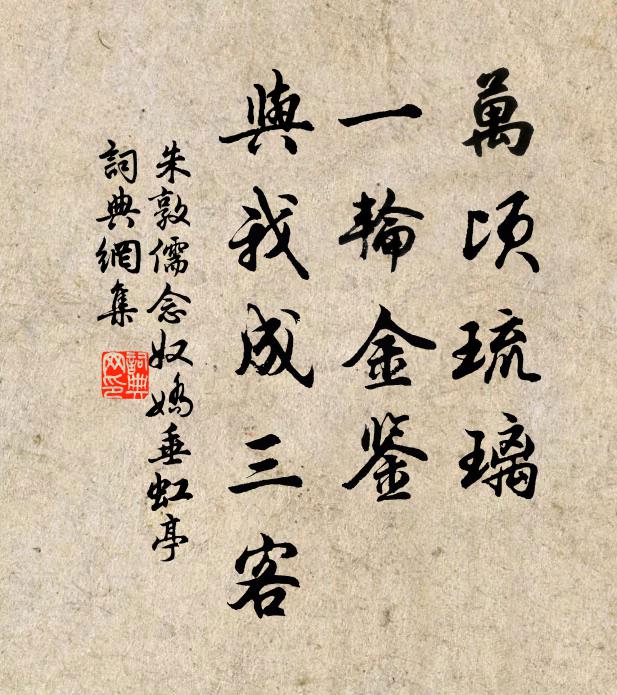 萬頃琉璃
一輪金鉴
與我成三客
朱敦儒念奴嬌垂虹亭
詞典網集
詞典网印